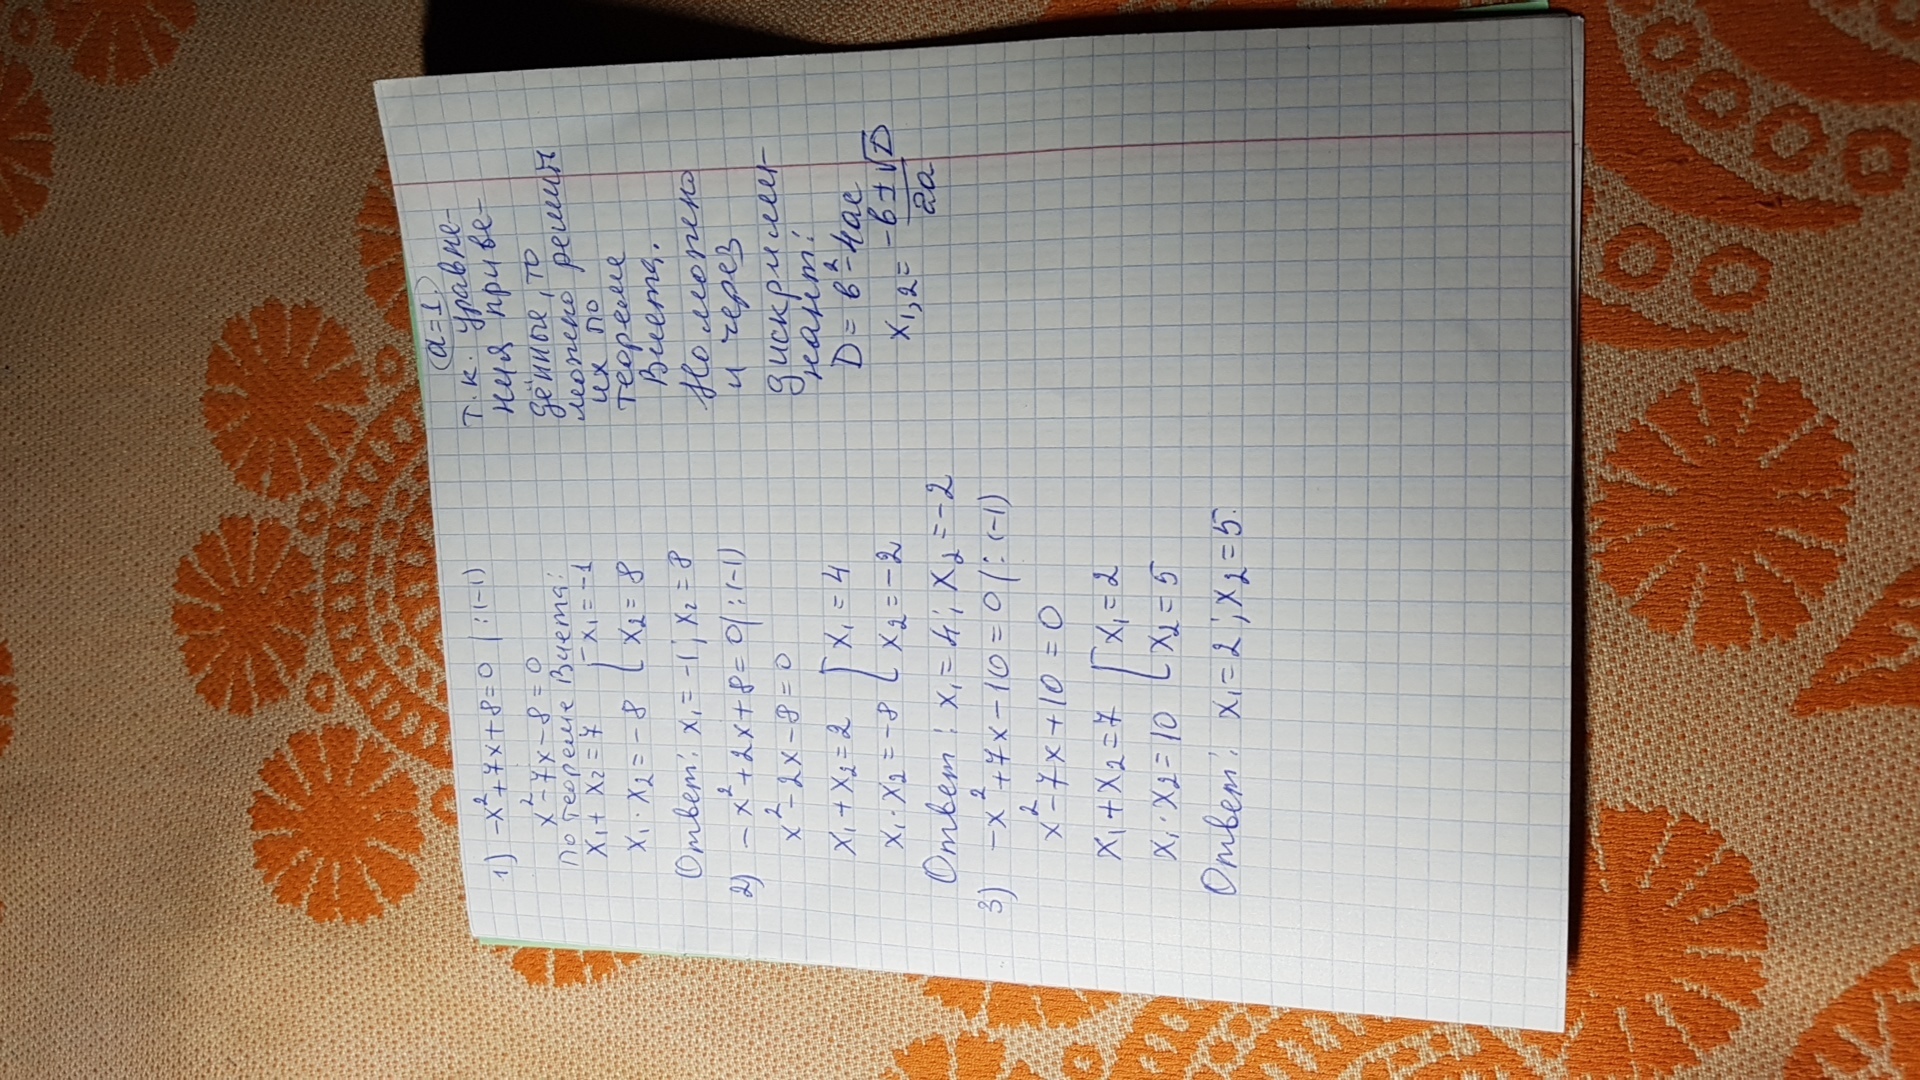 1) -x²+7x+8=0 |:(-1)
x²-7x-8=0
По теореме Виета:
x₁+x₂=7 [x₁=-1
x₁·x₂=-8 [x₂=8
Ответ: x₁=-1; x₂=8
2) -x²+2x+8=0|:(-1)
x²-2x-8=0
x₁+x₂=2 [x₁=4
x₁·x₂=-8 [x₂=-2
Ответ: x₁=4; x₂=-2
3) -x²+7x-10=0|:(-1)
x²-7x+10=0
x₁+x₂=7 [x₁=2
x₁·x₂=10 [x₂=5
Ответ: x₁=2; x₂=5.
(a=1)
т.к. уравне-
ния приве-
дённые, то
можно решить
их по
теореме
Виета.
Но можно
и через
дискрими-
нант:
D=b²-4ac
x₁,₂=(-b±√D)/2a